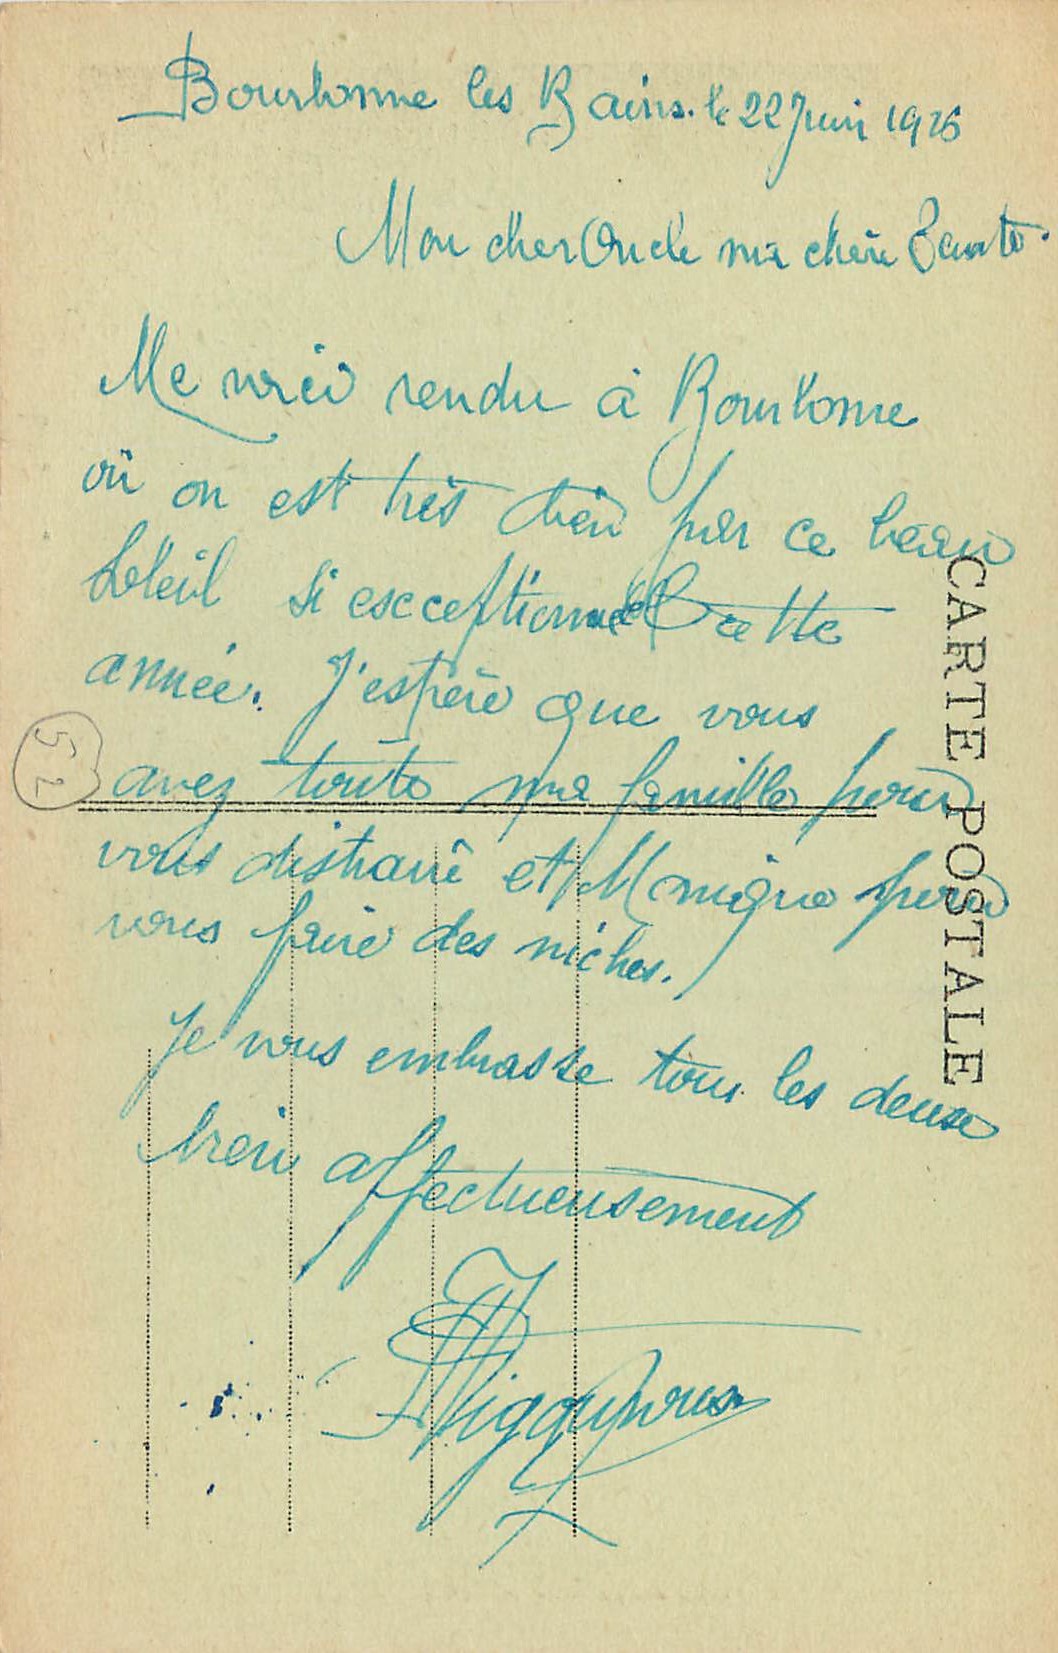 Bourbonne les Bains. le 22 Juin 1926
Mon cher Oncle ma chère Tante.
Me voici rendu à Bourbonne
où on est très bien par ce beau
soleil si exceptionnel cette
année. J'espère que vous
avez toute ma famille pour
vous distraire et pour
vous faire des niches.
Je vous embrasse tous les deux
bien affectueusement
CARTE POSTALE
52